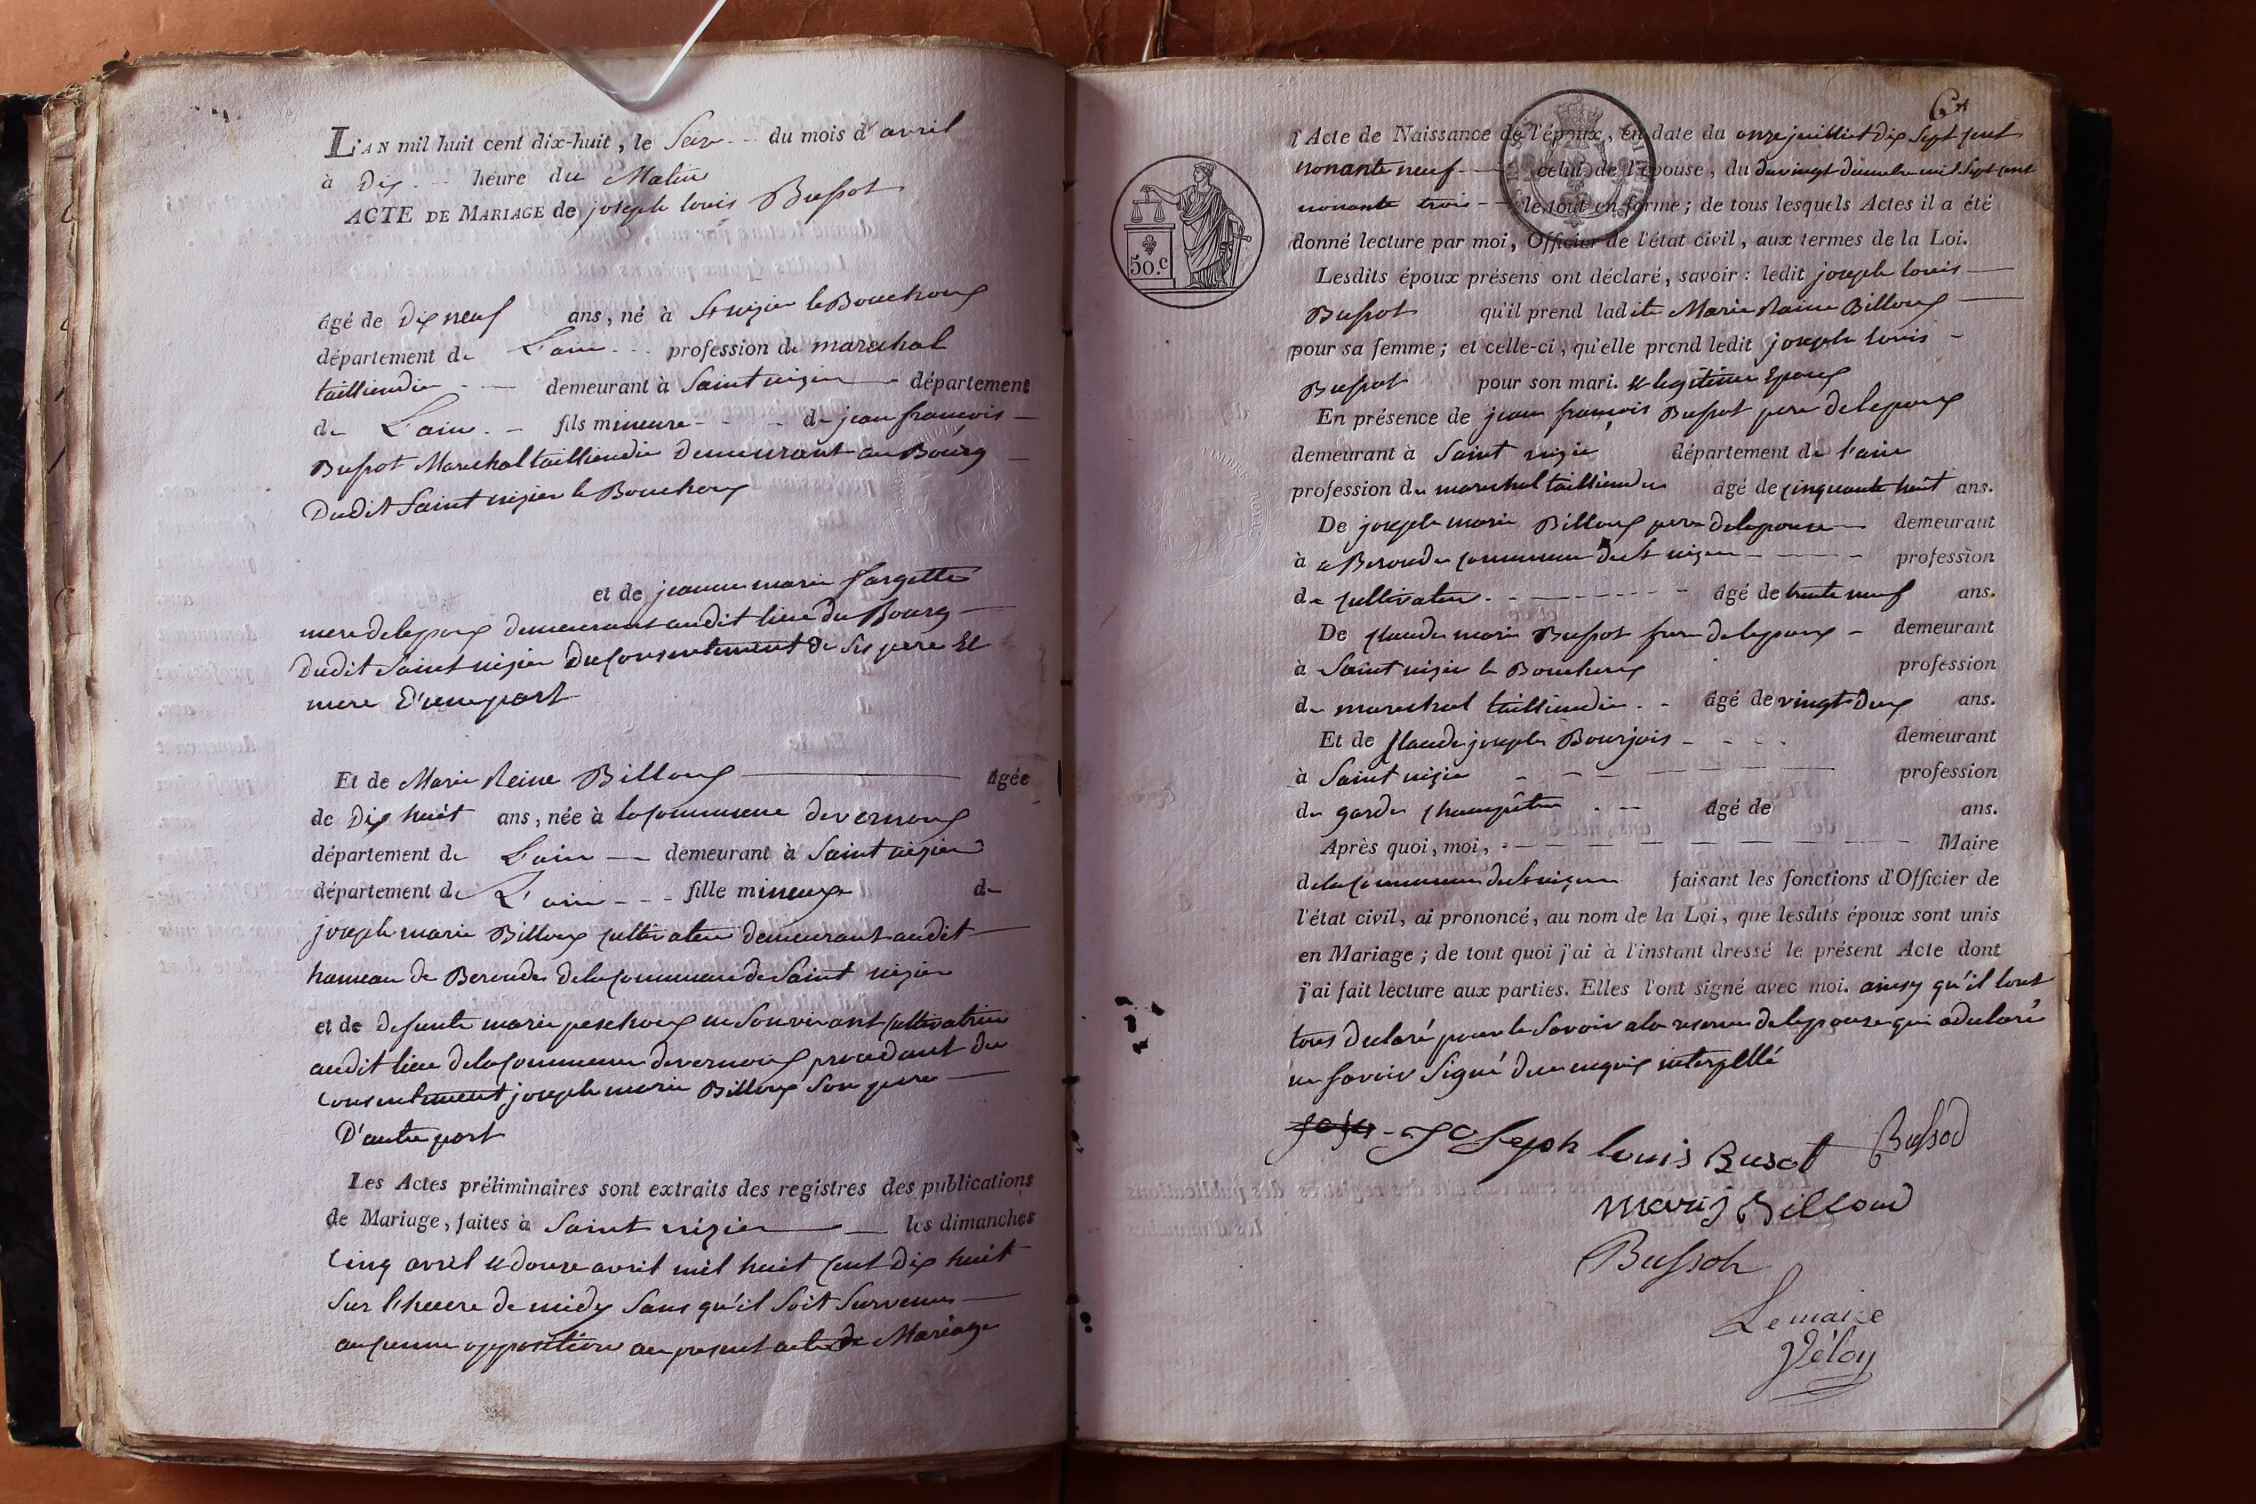 L'AN mil huit cent dix-huit, le Seize du mois d'avril
à Dix heure du Matin
ACTE DE MARIAGE de joseph louis Bussot
âgé de Dix neuf ans, né à St nizier le Bouchoux
département de L'ain profession de marechal
tailliendier demeurant à Saint nizier département
de L'ain fils mineure de jean françois
Bussot Marechal tailliendier Demeurant au Bourg
Dudit Saint nizier le Bouchoux
et de jeanne marie fargette
mere de lepoux demeurant audit lieu du Bourg
Dudit Saint nizier Du Consentement de ses pere Et
mere D'une part
Et de Marie Reine Billoux âgée
de Dix huit ans, née à la Commune de vernoux
département de L'ain demeurant à Saint nizier
département de L'ain fille mineure de
joseph marie Billoux Cultivateur demeurant audit
hameau de Beroude de la Commune de Saint nizier
et de Defunte marie pescheux en Son vivant Cultivatrice
audit lieu de la Commune de vernoux procedant du
Consentement joseph marie Billoux Son pere
D'autre part
Les Actes préliminaires sont extraits des registres des publications
de Mariage, faites à Saint nizier les dimanches
Cinq avril et douze avril mil huit Cent Dix huit
Sur l'heure de midy Sans qu'il Soit Survenus
auCunne opposition au present acte de Mariage
64
l'Acte de Naissance de l'époux, en date du onze juilliet dix Sept Cent
nonante neuf celui de l'épouse, du du vingt décembre mil Sept Cent
nonante trois le tout en forme; de tous lesquels Actes il a été
donné lecture par moi, Officier de l'état civil, aux termes de la Loi.
50.c
Lesdits époux présens ont déclaré, savoir: ledit joseph louis
Bussot qu'il prend ladite Marie Raine Billoux
pour sa femme; et celle-ci, qu'elle prend ledit joseph louis
Bussot pour son mari. et legitime Epoux
En présence de jean françois Bussot pere de lepoux
demeurant à Saint nizie département de l'ain
profession de marechal tailliendier âgé de Cinquante huit ans.
De joseph marie Billoux pere de lepouse demeurant
à a Beroude Commune de St nizier profession
de Cultivateur âgé de trente neuf ans.
De Claude marie Bussot frere de lepoux demeurant
à Saint nizie le Bouchoux profession
de marechal tailliendier âgé de vingt Deux ans.
Et de Claude joseph Bourjois demeurant
à Saint nizie profession
de garde Champêtre âgé de ans.
Après quoi, moi, Maire
de la Commune de St nizier faisant les fonctions d'Officier de
l'état civil, ai prononcé, au nom de la Loi, que lesdits époux sont unis
en Mariage; de tout quoi j'ai à l'instant dressé le présent Acte dont
j'ai fait lecture aux parties. Elles l'ont signé avec moi. ainsy qu'il lont
tous declaré pour le Savoir a la reserve de lepouse qui a declaré
ne Savoir Signé de ce enquis interpellé
Joseph louis Busot Bussod
marij Billoud
Bussoh
Le maire
Véloy